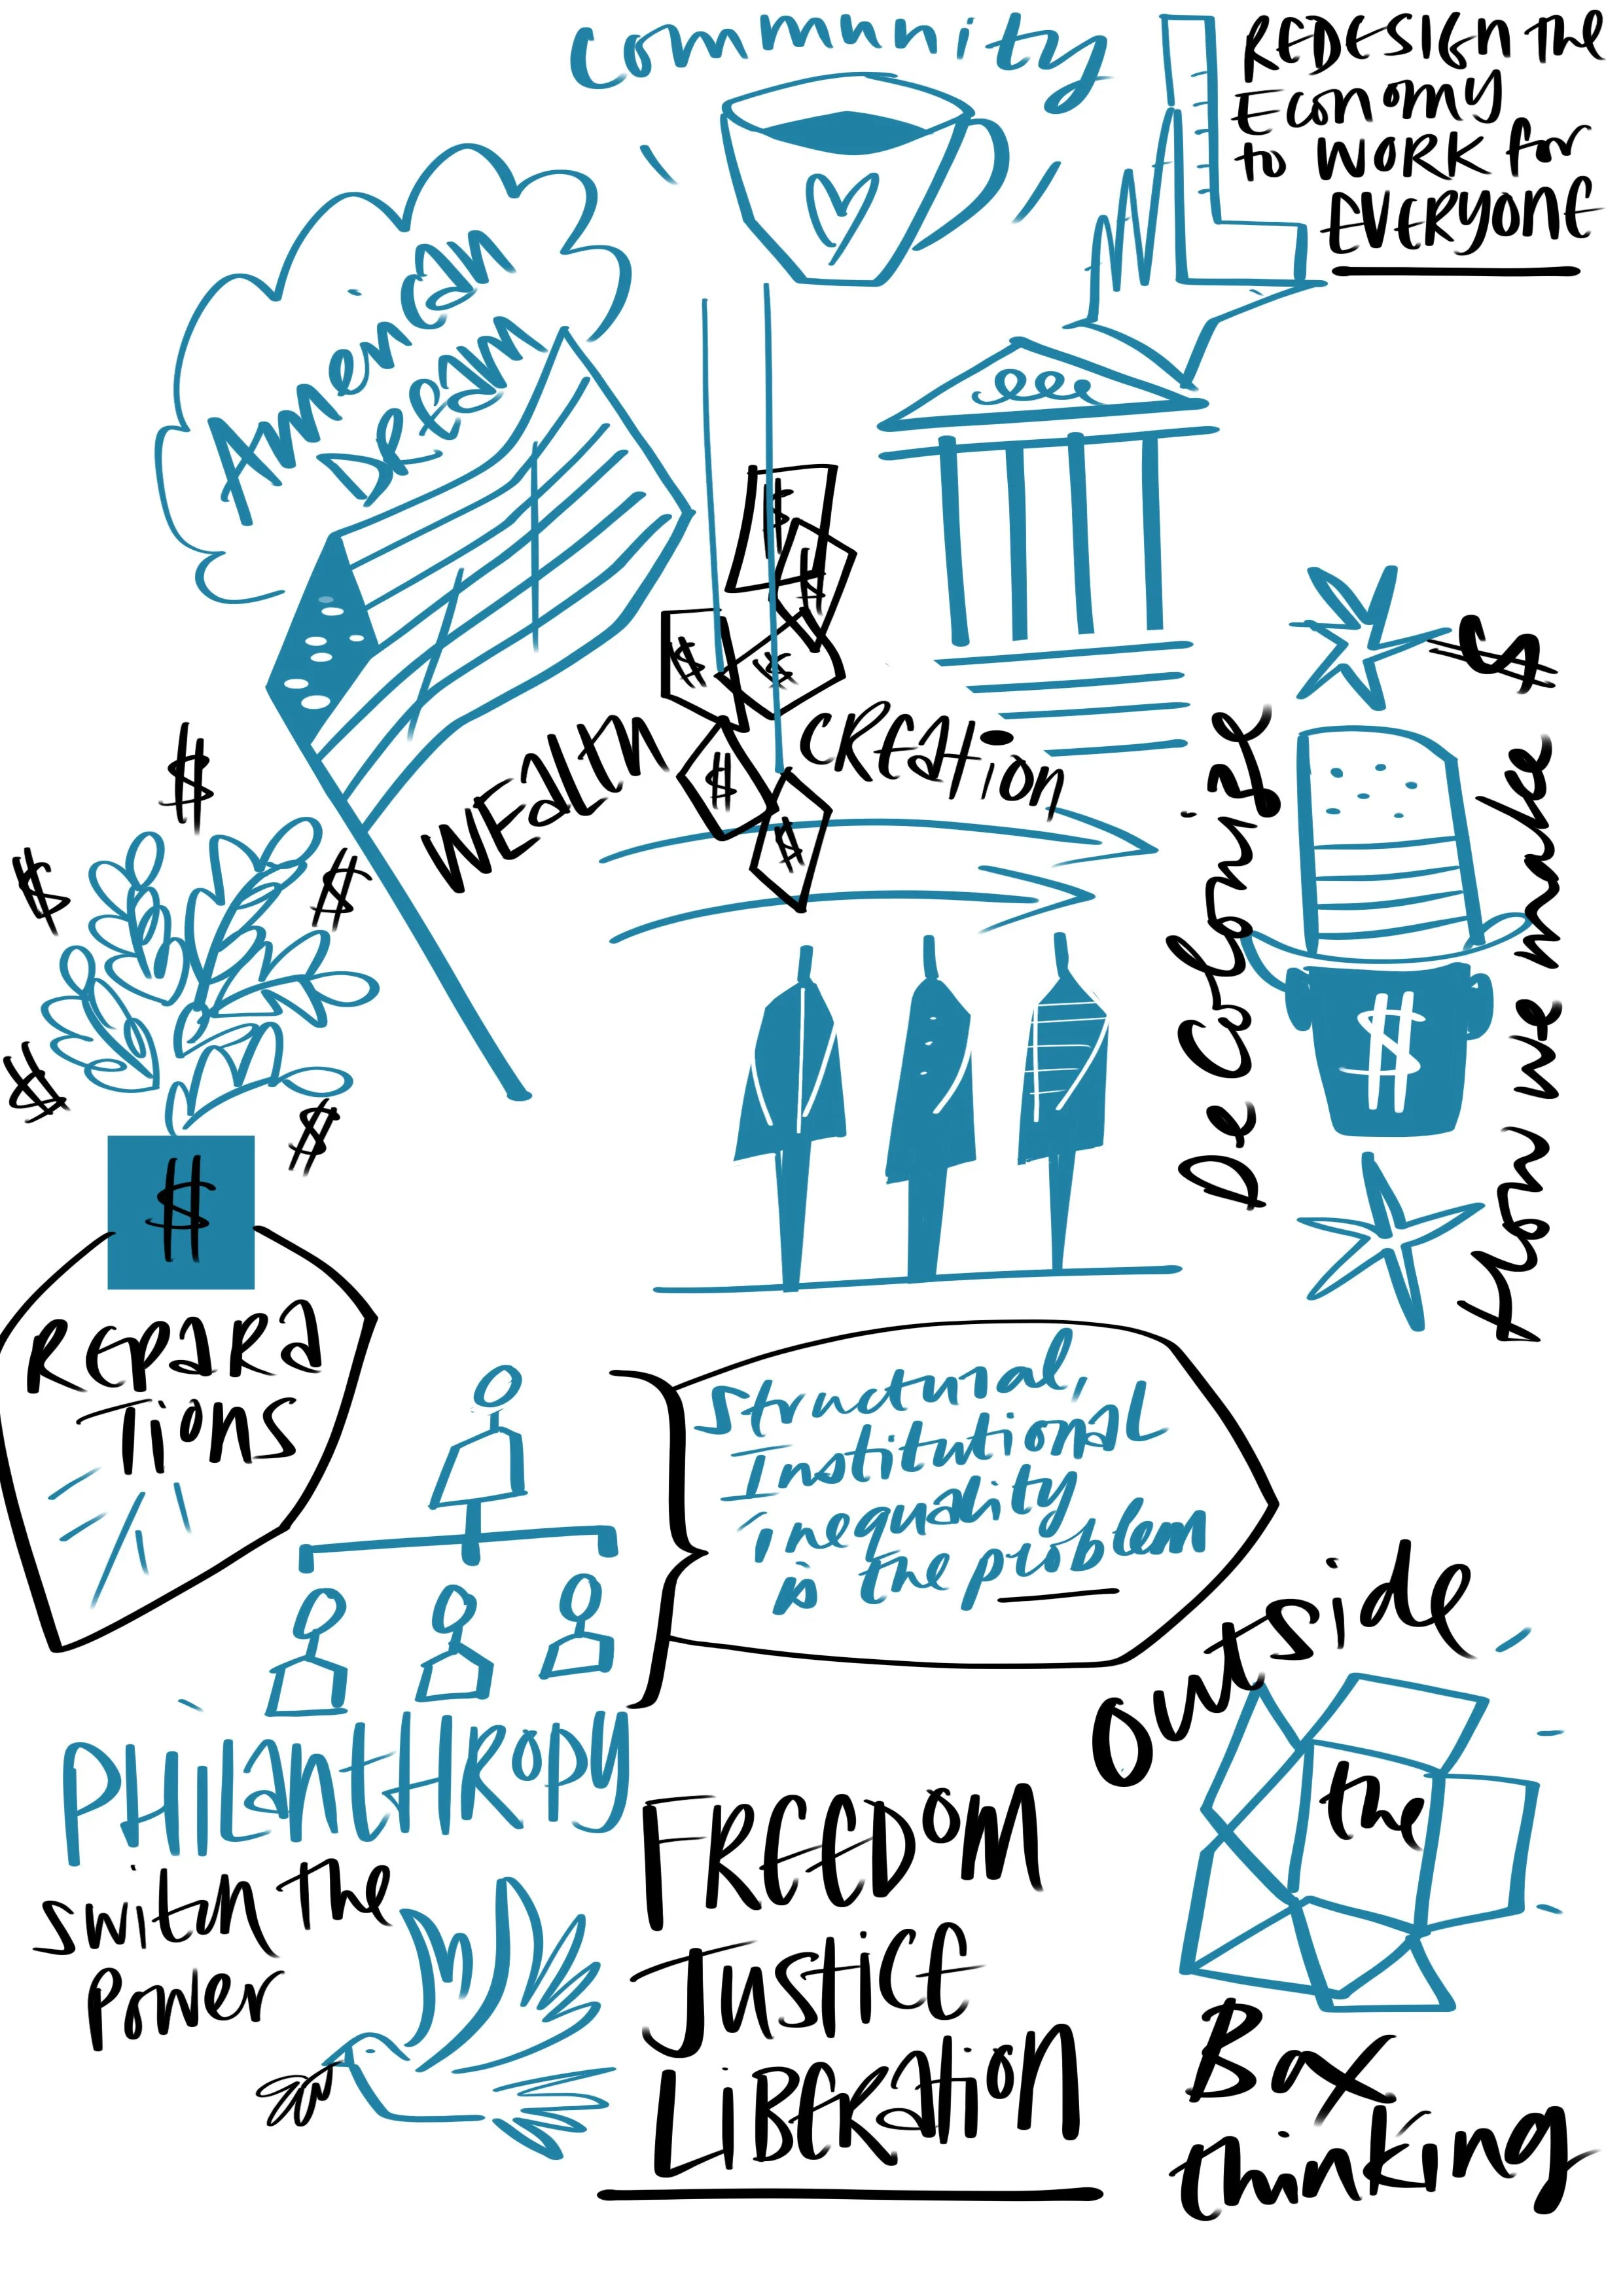 Community
REDESIGN THE
ECONOMY
to WORK for
EVERYONE
American
Dream
$
$
$
$
$
WEALTH CREATION
$
$
$
$
$
$
$
De Colonize
How we hire
$
$
$
$
REPARA
TIONS
Structural,
Institutional
inequality
is the problem
PHILANTHROPY
switch the
Power
FREEDOM
JUSTICE
LIBERATION
outside
the
Box
thinking